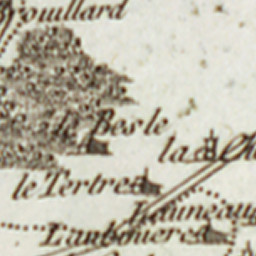 Brouillard
le Besle
la
le Tertre
Launeau
Lanbouere